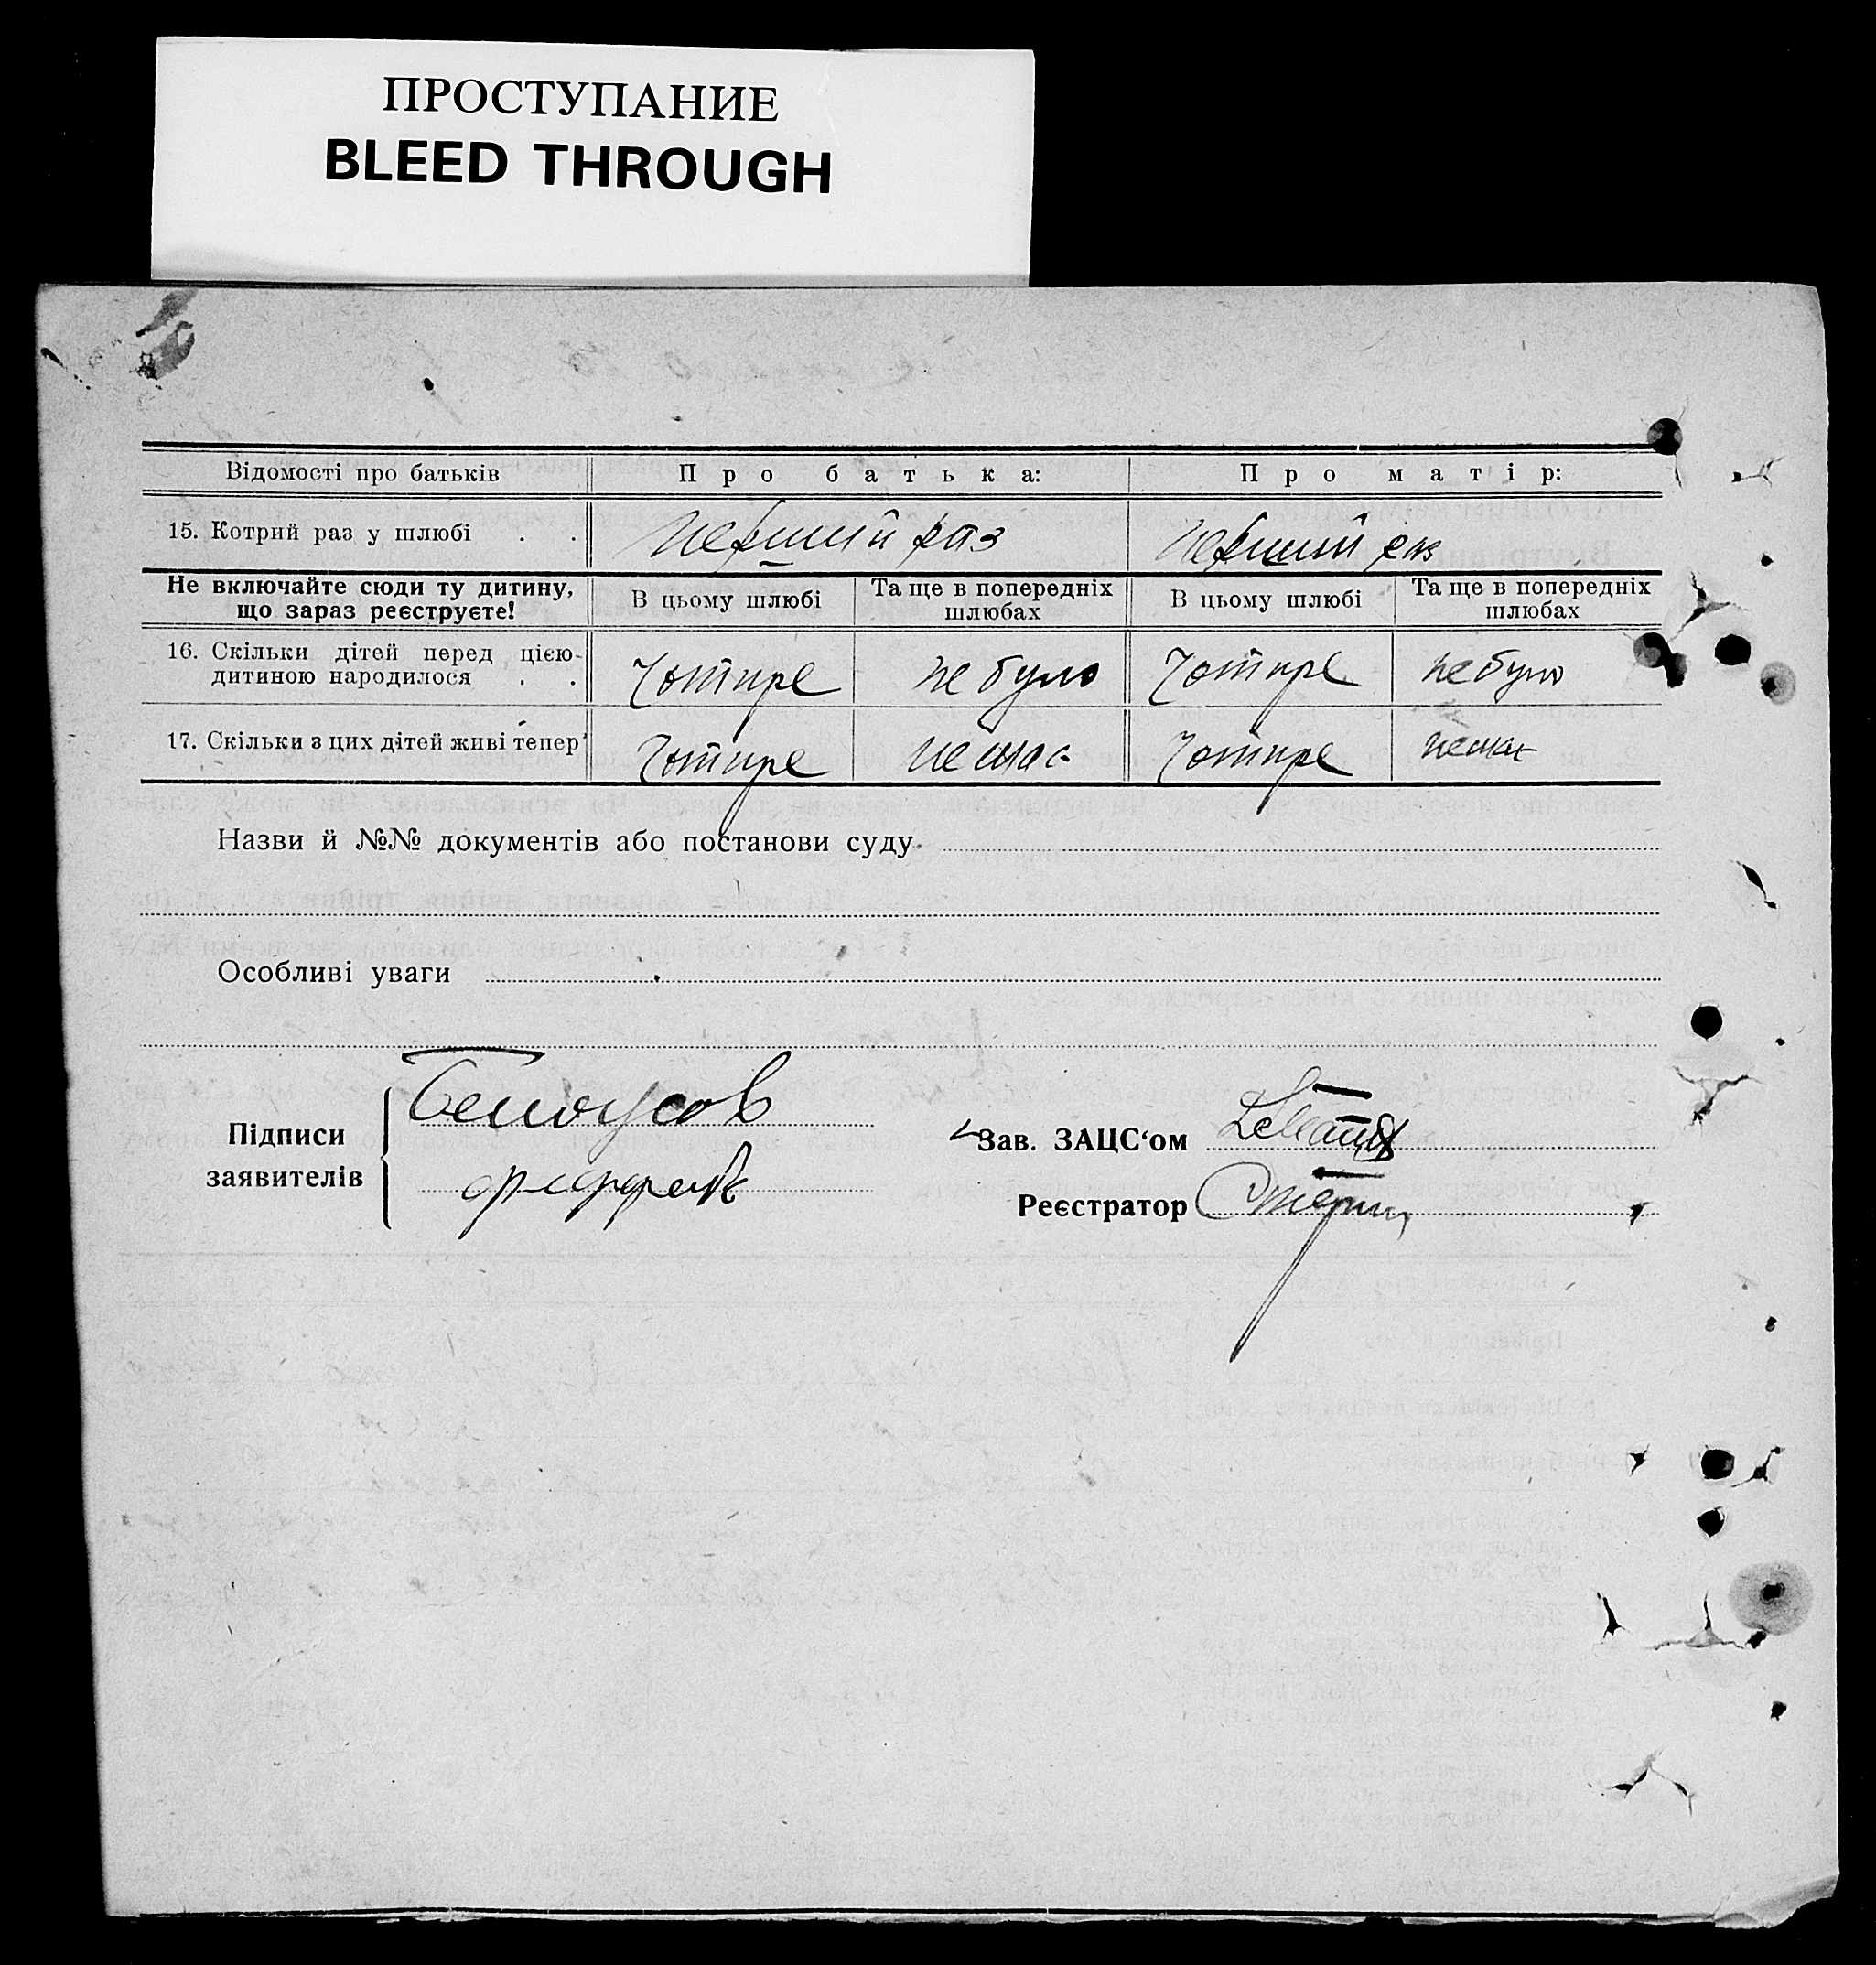 ПРОСТУПАНИЕ
BLEED THROUGH
Відомості про батьків Про батька: Про матір:
15. Котрий раз у шлюбі . . перший раз перший раз
Не включайте сюди ту дитину, що зараз реєструєте! В цьому шлюбі Та ще в попередніх шлюбах В цьому шлюбі Та ще в попередніх шлюбах
16. Скільки дітей перед цією
дитиною народилося . . Чотире не було Чотире не було
17. Скільки з цих дітей живі тепер Чотире немає Чотире немає
Назви й №№ документів або постанови суду
Особливі уваги
Підписи
заявителів
Белоусов
Зав. ЗАЦС‘ом
Реєстратор